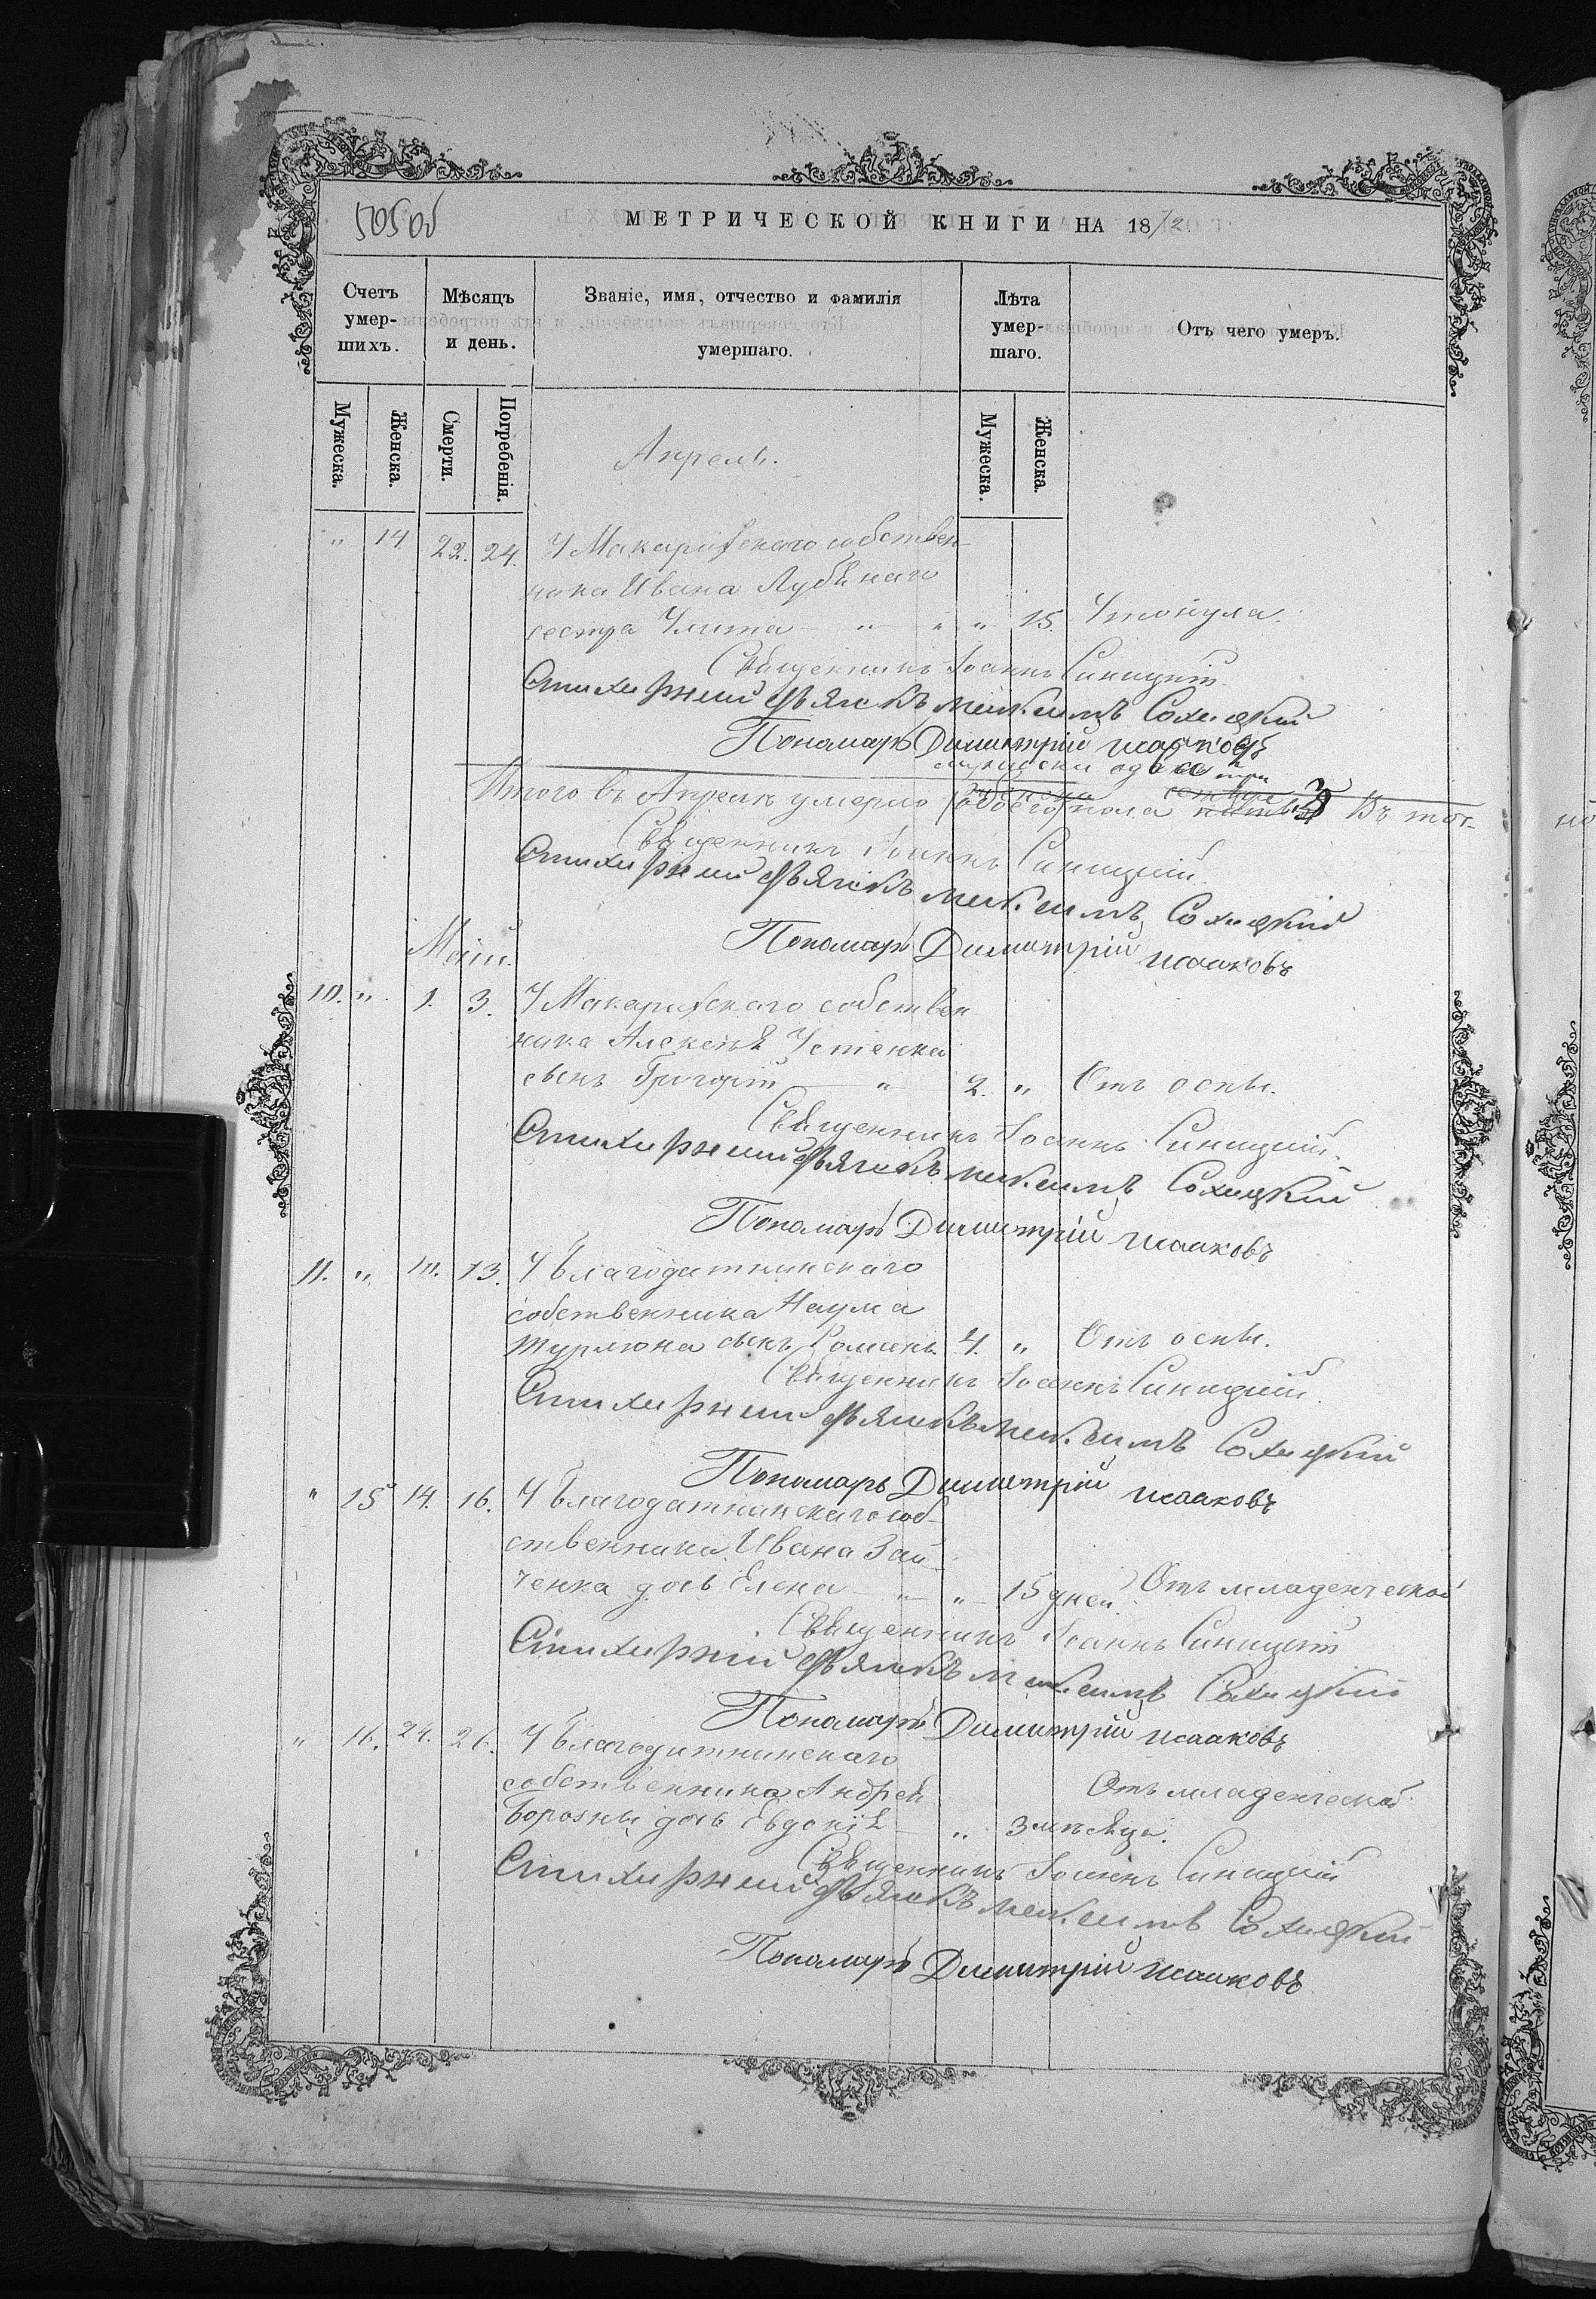 МЕТРИЧЕСКОЙ КНИГИ НА 1872
Счетъ умер-шихъ.
Мѣсяцъ и день.
Званіе, имя, отчество и фамилія умершаго.
Лѣта умер-шаго.
Отъ чего умеръ.
Мужеска. Женска. Смерти. Погребенія. Мужеска. Женска.
Апрель.
" 14. 22. 24. У Макаріевскаго собствен-
ника Ивана
сестра Улита " " " 15. Утонула.
Священникъ Іоаннъ Синицкій
Стихирный Дьячекъ Максимъ Сохацкій
Пономарь Димитрій Исаковъ
мужеска одна
Итого въ Апрелѣ умерло обоего пола Въ тог-
Священникъ Іоаннъ Синицкій
Стихирный Дьячекъ Максимъ Сохацкій
Пономарь Димитрій Исааковъ
Май.
10. " 1. 3. У Макаріевскаго собствен
ника Алексѣя Устенка
сынъ Григорій " 2. " Отъ оспы.
Священникъ Іоаннъ Синицкій.
Стихирный Дьячекъ Максимъ Сохацкій
Пономарь Димитрій Исааковъ
11. " 10. 13. У благодатнинскаго
собственника Наума
сынъ Романъ. 4. " Отъ оспы.
Священникъ Іоаннъ Синицкій.
Стихирный Дьячекъ Максимъ Сохацкій
Пономарь Димитрій Исааковъ
" 15 14. 16. У благодатнинскаго соб-
ственника Ивана Зай
ченка дочь Елена " " 15 дней. Отъ младенческой
Священникъ Іоаннъ Синицкій
Стихирный Дьячекъ Максимъ Сохацкій
Пономарь Димитрій Исааковъ
" 16. 24. 26. У благодатнинскаго
собственника Андрей
Борозны дочь Евдокіѣ " 3 мѣсяца. Отъ младенческой.
Священникъ Іоаннъ Синицкій
Стихирный Дьячекъ Максимъ Сохацкій
Пономарь Димитрій Исааковъ